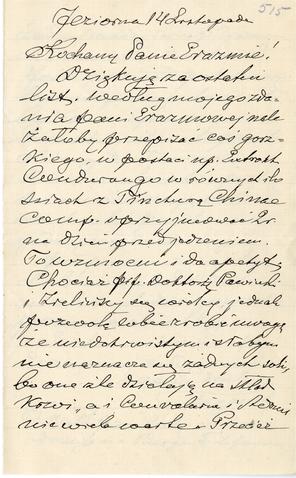 515
Jeziorna 14 Listopada
Kochany Panie Erazmie!
Dziękuję za ostatni
list. Według mojego zda-
nia pani Erazmowej nale-
żałoby przepisać coś gorz-
kiego, w postaci np. Extrakt
Condurango w równych ilo
ściach z Tincturą Chinae
comp. i przyjmować
na dzień przed jedzeniem.
To wzmocni i da apetyt.
Chociaż pp. Doktorzy Pawiński
i Zieliński są wielcy jednak
pozwolę sobie zrobić uwagę
że niedokrwistym i słabym
nie naznacza się żadnych soli,
bo one źle działają na skład
krwi, a i Convalaria i Adonis
nie wiele warte. Przecież